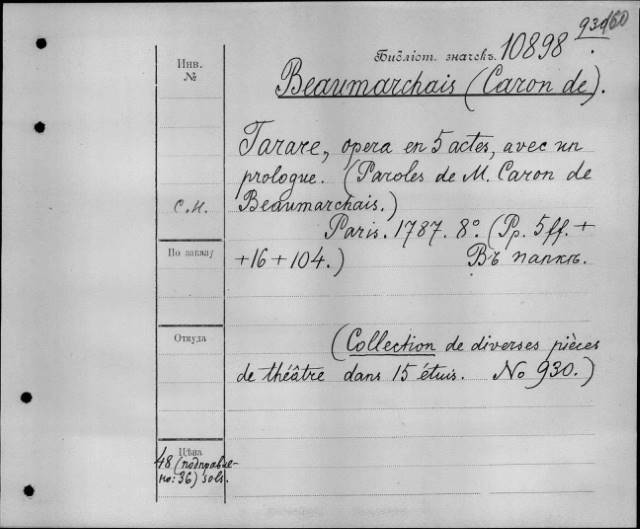 930/60
Библіот. значекъ. 10898
Инв.
№
Beaumarchais (Caron de).
Tarare, opera en 5 actes, avec un
prologue. (Paroles de M. Caron de
С.Н. Beaumarchais.)
Paris. 1787. 8º. (Pp. 5ff. +
По заказу
+16 + 104.) Въ папкѣ.
Откуда
(Collection de diverses pièces
de théâtre dans 15 étuis. No 930.)
Цѣна
48 (подправле-
но: 36) sols.